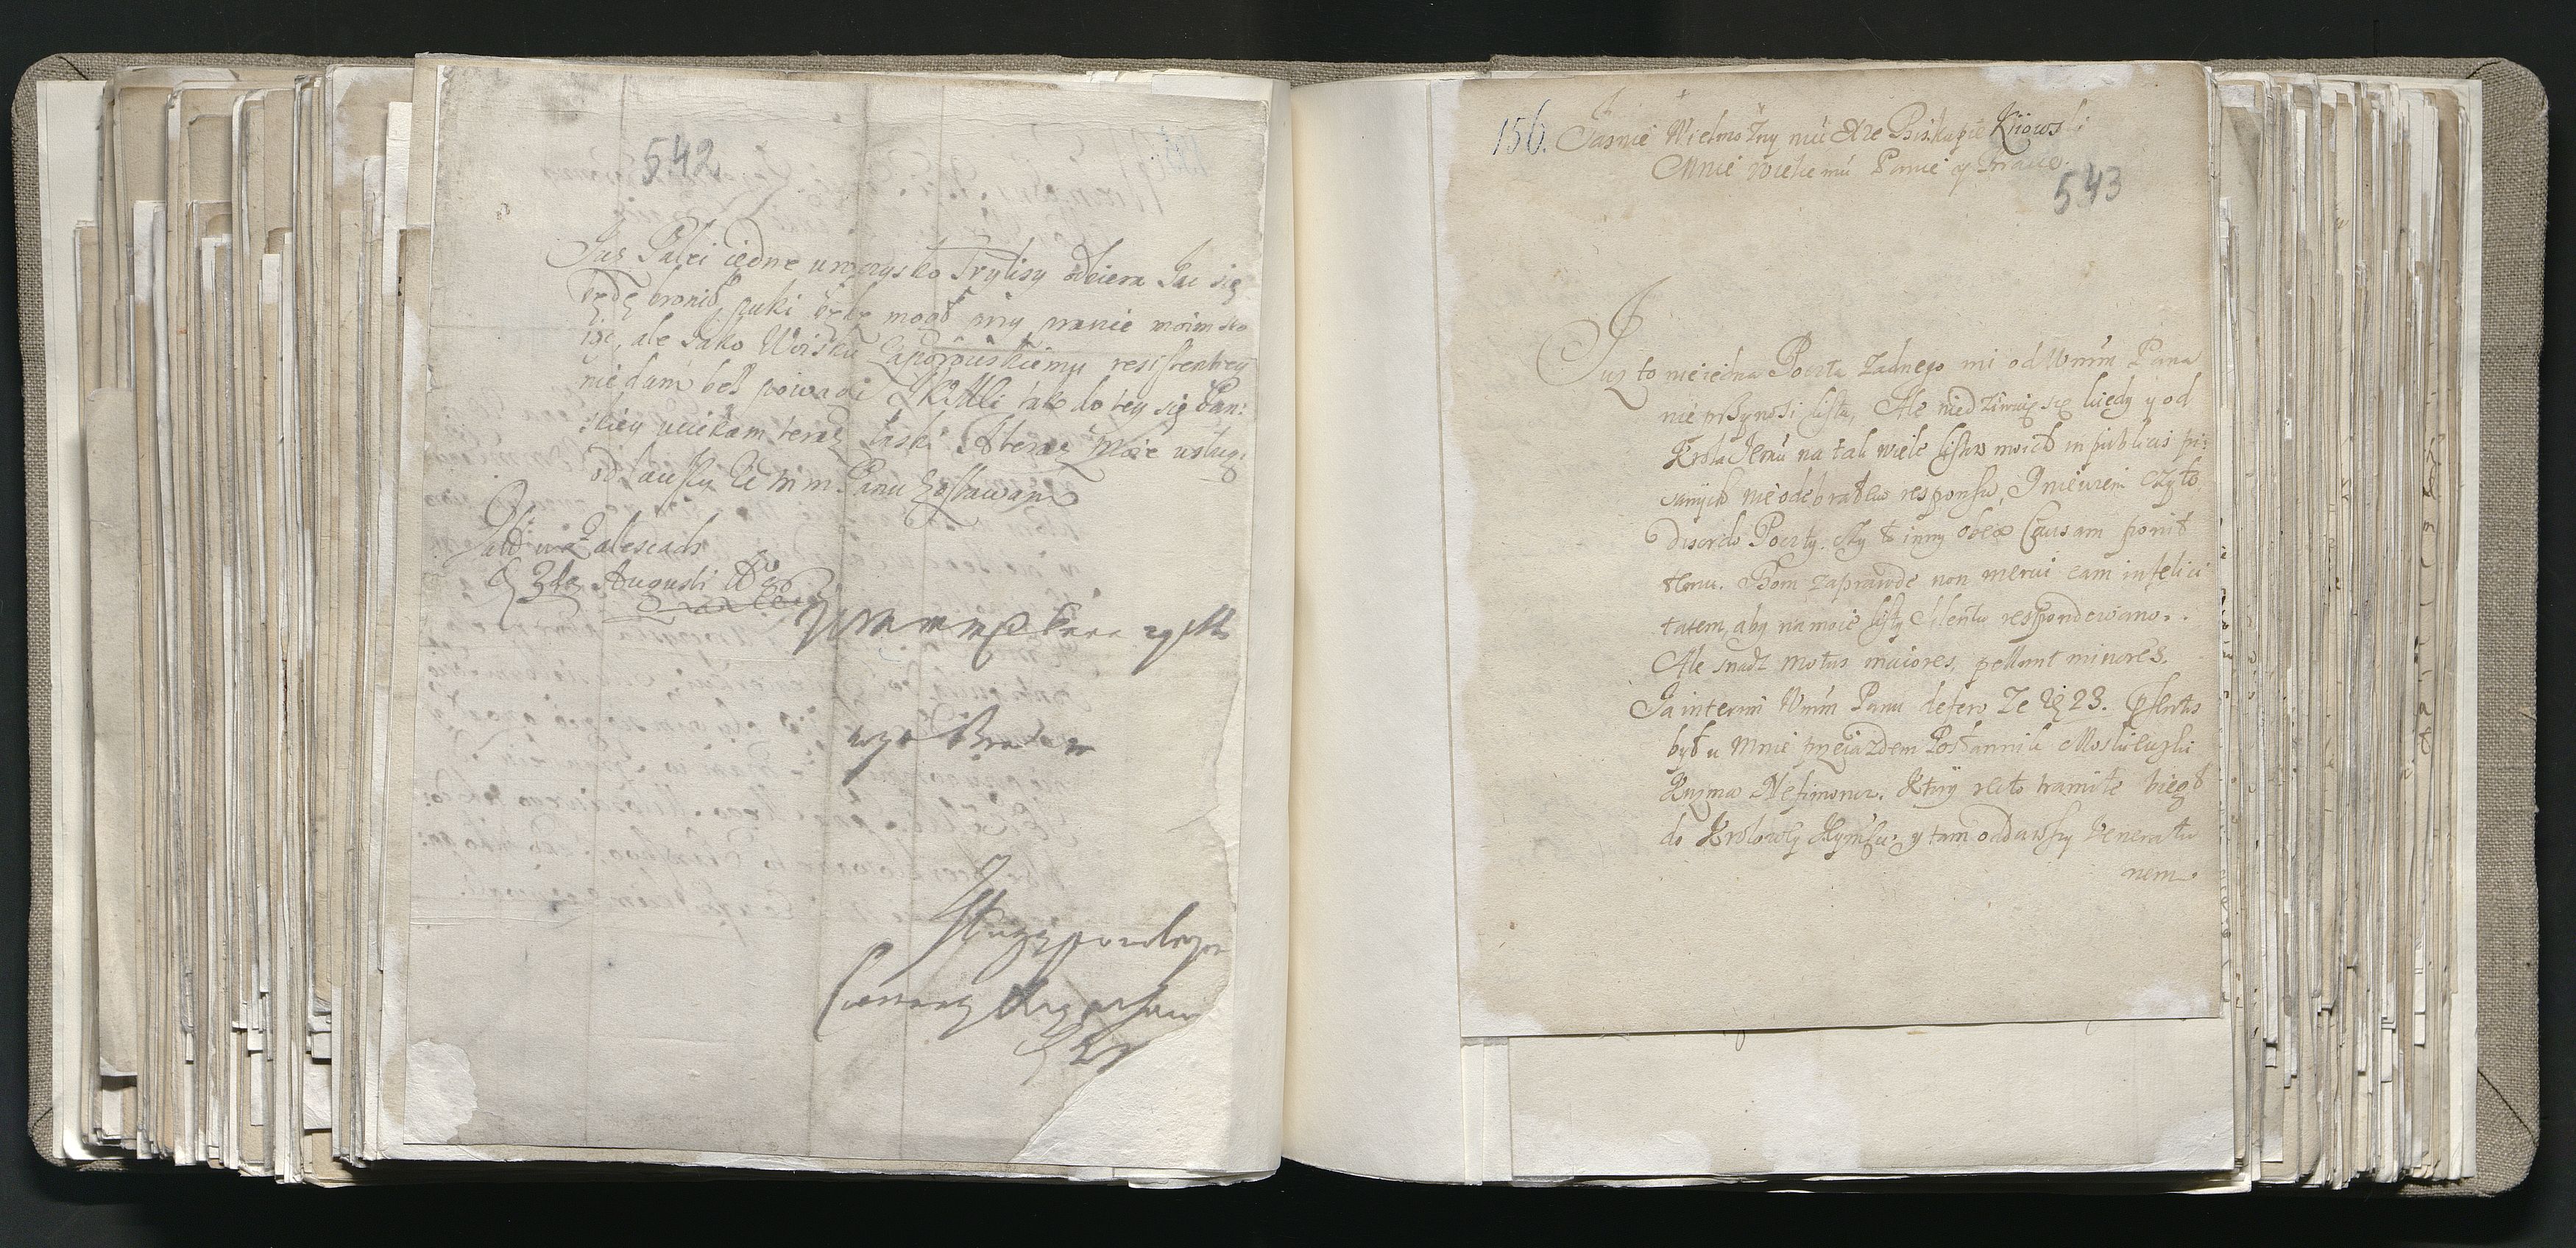 542
Jus Palei iedne uroczysko Trylisy odbiera Jac się
będę bronił puki będę mogł przy prawie moim sto
iąc, ale Jako Woisku Zaporouskiemu resistentiey
nie dam beß powagi JKMMci tak do tey się Pan:
skiey uciekam teraz łaski Ateraz Moie usługi
oddawszy Wmm Panu Zostawam
Dat w Zalescach
D 3da Augusti A°
Wm mm Pana
Brata
Sługa powolny
156. Jasnie Wielmozny mći Xze Biskupie Kiiowski
Mnie Wielce mći Panie y Bracie.
543
Juz to nie iedna Poczta Zadnego mi od Wmm Pana
nie przynosi listu, Ale niedziwuię się kiedy y od
Krola Jemci na tak wiele listow moich in publicis pi:
sanych nie odebrałem responsu, Jniewiem czy to
discordo Poczty. Czy to inny obex Causam ponit
temu. Bom zaprawde non merui eam infelici
tatem, aby na moie listy silentio respondewano.
Ale snadz motus maiores, pellunt minores.
Ja interim Wmm Panu defero Ze D 23. Psentis
był u mnie przeiazdem Posłannik Moskiewski
Kuzma Nefimonow. Ktory recto tramite biegł
do Krolowy Rzymskiey y tam oddawszy Venera tio
nem